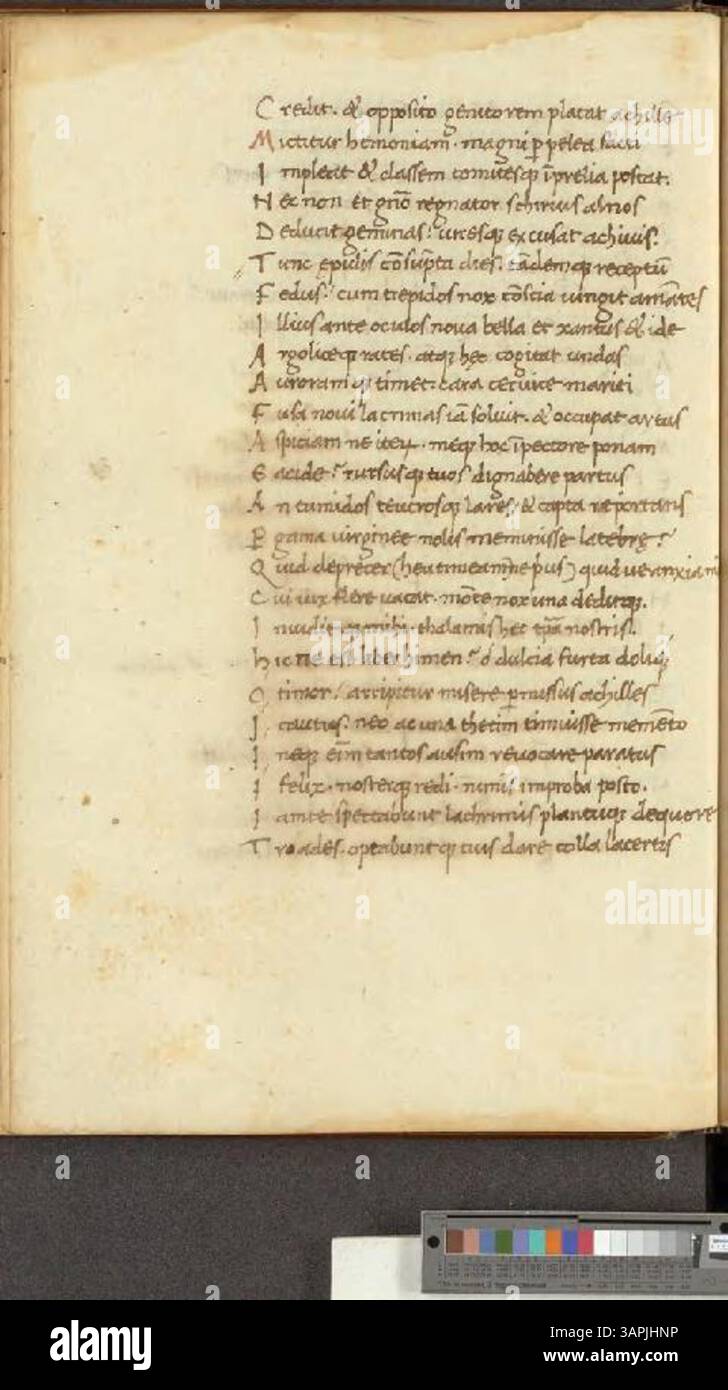 C redit. & opposito genitorem placat achille
M ictitur hemoniam. magni ꝑ pelea
I mpleat & classem comitesqȝ ī prelia poscat.
N ec non et regnator schirius alnos
D educit geminas: uiresqȝ excusat achiuis.
T unc epulis cōsūpta dies. tādemqȝ receptū
F edus: cum trepidos nox cōscia iungit amātes
I llius ante oculos noua bella et xantus & ide
A rgoliceqȝ rates. atqȝ hec cogitat undas
A uroramqȝ timet. cara ceruice mariti
F usa noui lacrimas iā soluit. & occupat artus
A spiciam ne iteꝝ. meqȝ hoc ī pectore ponam
E acide? rursusqȝ tuos dignabere partus
A n tumidos teucrosqȝ lares. & capta reportans
P gama uirginee nolis meminisse latebrę?
Q uid deprecer (heu timeamne pus) quid ue anxia
C ui uix flere uacat. mōte nox una deditqȝ.
I nuidit qȝ mihi. thalamis hec tꝑa nostris.
h ic ne est liber himen? o dulcia furta doliqȝ
O timor. arripitur misere ꝑmissus achilles
I cautus. nec ac una thetim timuisse memēto
I neqȝ eīm tantos ausim reuocare paratus
I felix. nosterqȝ redi. nimis improba posco.
I amte spectabunt lachrimis planctuqȝ dequore
T roades. optabuntqȝ tuis dare colla lacertis
alamy
Image ID: 3APJHNP
www.alamy.com